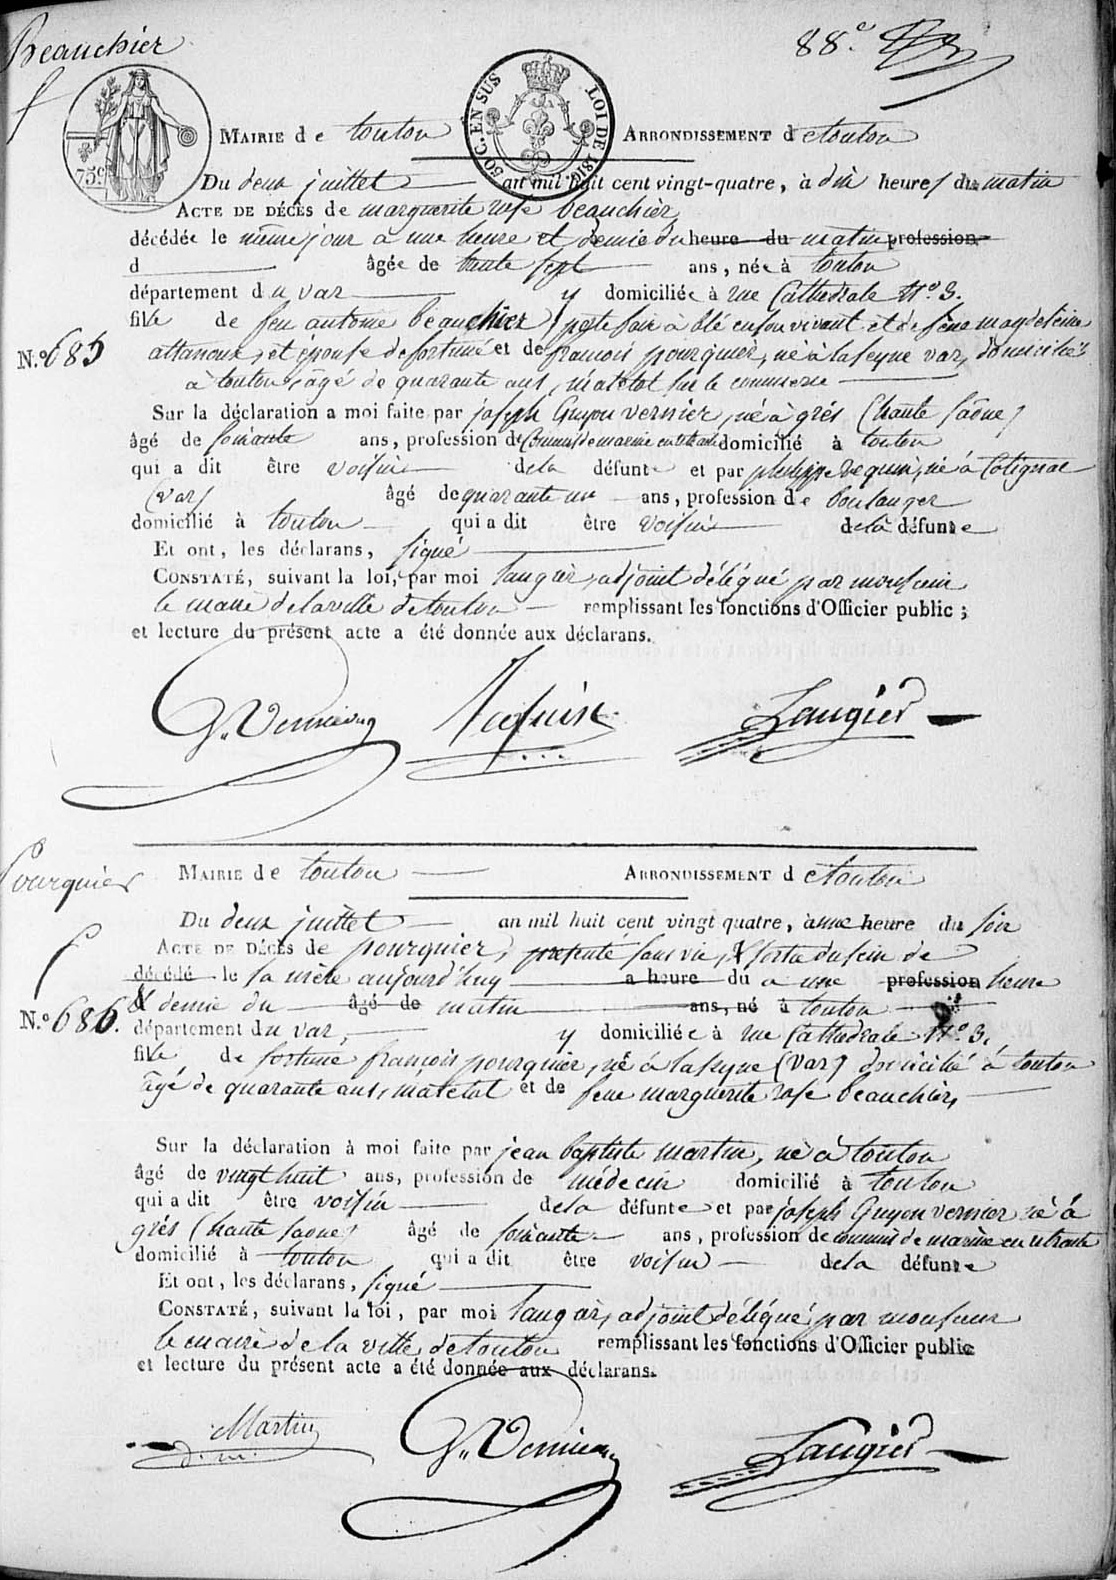 Beauchier
f
88.e
75 c.
50 C. EN SUS LOI DE 1816
MAIRIE de toulon ARRONDISSEMENT de toulon
Du deux juillet an mil huit cent vingt-quatre, à dix heures du matin
ACTE DE DÉCÈS de marguerite rose beauchier,
décédée le même jour à une heure et demie du heure du matin profession
d âgée de trente sept ans, née à toulon
département du var y domiciliée à rue Cathedrale N.o 3.
fille de feu antoine beauchier, portefaix à blé en son vivant et de feue magdeleine
N.o 685 attanoux, et épouse de fortuné et de françois pourquier, né à la seyne var, domicilié
à toulon, âgé de quarante ans, matelot sur le commerce
Sur la déclaration a moi faite par joseph Guyon vernier, né à grés (haute saône)
âgé de soixante ans, profession de Commis de marine en retraite domicilié à toulon
qui a dit être voisin de la défunte et par philippe requin, né à Cotignac
(var) âgé de quarante un ans, profession de boulanger
domicilié à toulon qui a dit être voisin de la défunte
Et ont, les déclarans, signé
CONSTATÉ, suivant la loi, par moi laugier, adjoint délégué par monsieur
le maire de la ville de toulon remplissant les fonctions d'Officier public ;
et lecture du présent acte a été donnée aux déclarans.
G. Vernier Requin Laugier
Pourquier
MAIRIE de toulon ARRONDISSEMENT de toulon
Du deux juillet an mil huit cent vingt quatre, à une heure du soir
f ACTE DE DÉCÈS de pourquier, présenté sans vie, & sorti du sein de
décédé le sa mère aujourd'huy a heure du à une profession heure
& demie du âgé de matin ans, né à toulon
N.o 686. département du var, y domiciliée à rue Cathedrale N.o 3.
fille de fortuné françois pourquier, né à la seyne (var) domicilié à toulon
âgé de quarante ans, matelot et de feue marguerite rose beauchier,
Sur la déclaration à moi faite par jean baptiste martin, né à toulon
âgé de vingt huit ans, profession de médecin domicilié à toulon
qui a dit être voisin de la défunte et par joseph Guyon vernier né à
grés (haute saone) âgé de soixante ans, profession de commis de marine en retraite
domicilié à toulon qui a dit être voisin de la défunte
Et ont, les déclarans, signé
CONSTATÉ, suivant la loi, par moi laugier, adjoint délégué par monsieur
le maire de la ville de toulon remplissant les fonctions d'Officier public
et lecture du présent acte a été donnée aux déclarans.
Martin G. Vernier Laugier
d. m.